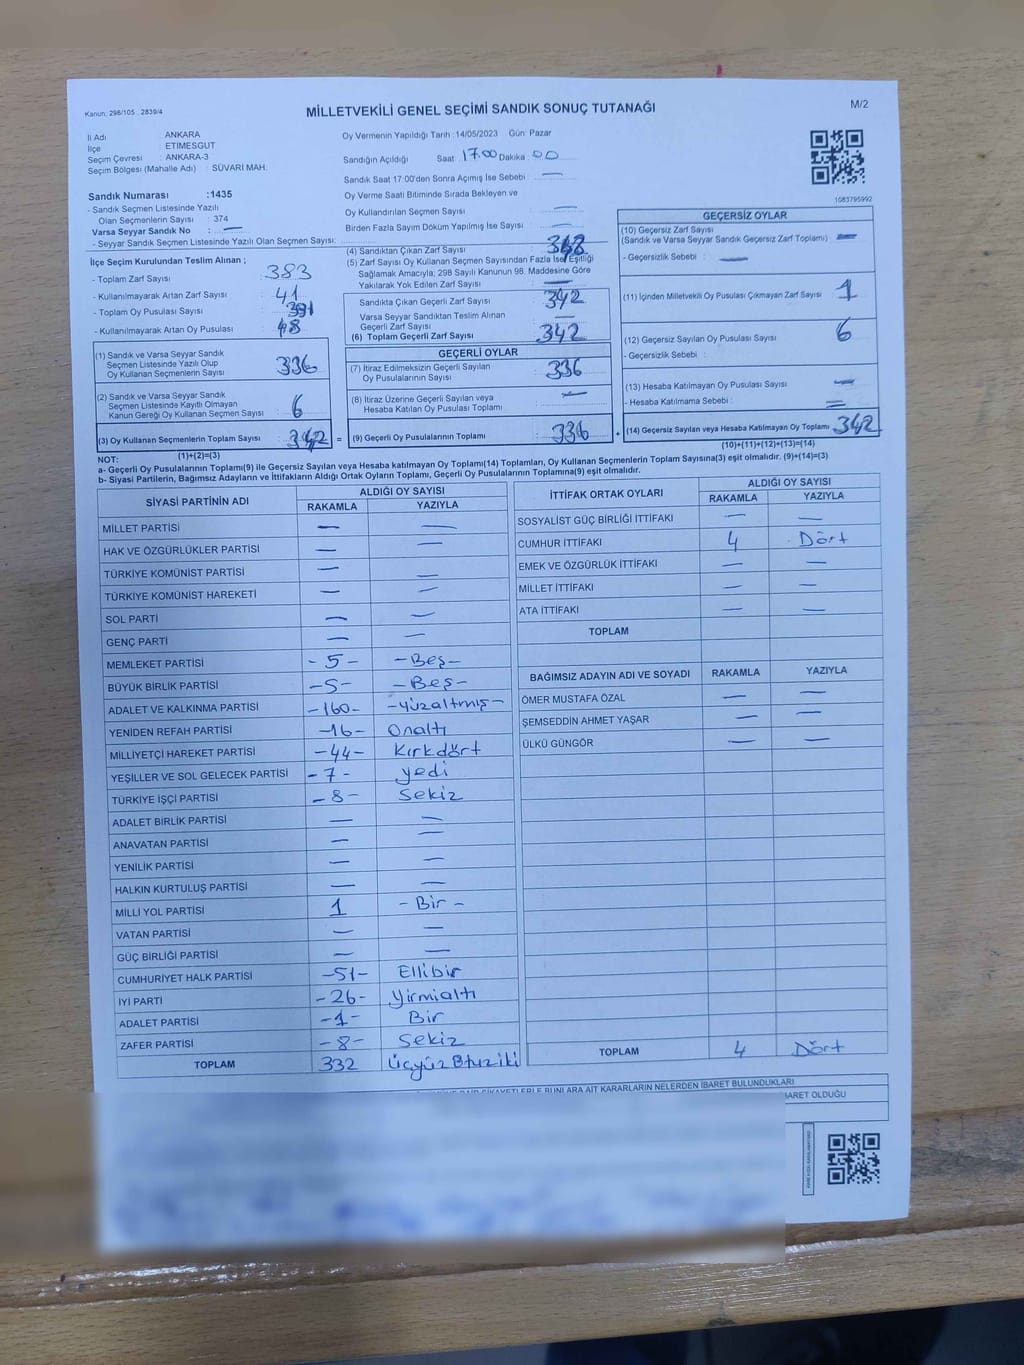 Kanun: 298/105 , 2839/4
MİLLETVEKİLİ GENEL SEÇİMİ SANDIK SONUÇ TUTANAĞI
M/2
İl Adı : ANKARA
İlçe : ETİMESGUT
Seçim Çevresi : ANKARA-3
Seçim Bölgesi (Mahalle Adı) : SÜVARİ MAH.
Oy Vermenin Yapıldığı Tarih :14/05/2023 Gün: Pazar
Sandığın Açıldığı Saat: 17.00 Dakika : 00
Sandık Saat 17:00'den Sonra Açımış İse Sebebi : —
Oy Verme Saati Bitiminde Sırada Bekleyen ve
Oy Kullandırılan Seçmen Sayısı : —
Birden Fazla Sayım Döküm Yapılmış İse Sayısı : —
1083795992
Sandık Numarası :1435
- Sandık Seçmen Listesinde Yazılı
Olan Seçmenlerin Sayısı : 374
Varsa Seyyar Sandık No : —
- Seyyar Sandık Seçmen Listesinde Yazılı Olan Seçmen Sayısı:
İlçe Seçim Kurulundan Teslim Alınan ;
- Toplam Zarf Sayısı : 383
- Kullanılmayarak Artan Zarf Sayısı : 41
- Toplam Oy Pusulası Sayısı :
- Kullanılmayarak Artan Oy Pusulası : 48
(1) Sandık ve Varsa Seyyar Sandık
Seçmen Listesinde Yazılı Olup
Oy Kullanan Seçmenlerin Sayısı : 336
(2) Sandık ve Varsa Seyyar Sandık
Seçmen Listesinde Kayıtlı Olmayan
Kanun Gereği Oy Kullanan Seçmen Sayısı : 6
(3) Oy Kullanan Seçmenlerin Toplam Sayısı : 342 =
(1)+(2)=(3)
(4) Sandıktan Çıkan Zarf Sayısı : 342
(5) Zarf Sayısı Oy Kullanan Seçmen Sayısından Fazla İse, Eşitliği
Sağlamak Amacıyla; 298 Sayılı Kanunun 98. Maddesine Göre
Yakılarak Yok Edilen Zarf Sayısı : —
Sandıkta Çıkan Geçerli Zarf Sayısı : 342
Varsa Seyyar Sandıktan Teslim Alınan
Geçerli Zarf Sayısı : —
(6) Toplam Geçerli Zarf Sayısı : 342
GEÇERLİ OYLAR
(7) İtiraz Edilmeksizin Geçerli Sayılan
Oy Pusulalarının Sayısı : 336
(8) İtiraz Üzerine Geçerli Sayılan veya
Hesaba Katılan Oy Pusulası Toplamı : —
(9) Geçerli Oy Pusulalarının Toplamı : 336 +
GEÇERSİZ OYLAR
(10) Geçersiz Zarf Sayısı
(Sandık ve Varsa Seyyar Sandık Geçersiz Zarf Toplamı) : —
- Geçersizlik Sebebi : —
(11) İçinden Milletvekili Oy Pusulası Çıkmayan Zarf Sayısı : 1
(12) Geçersiz Sayılan Oy Pusulası Sayısı : 6
- Geçersizlik Sebebi :
(13) Hesaba Katılmayan Oy Pusulası Sayısı : —
- Hesaba Katılmama Sebebi : —
(14) Geçersiz Sayılan veya Hesaba Katılmayan Oy Toplamı : 342
(10)+(11)+(12)+(13)=(14)
NOT:
a- Geçerli Oy Pusulalarının Toplamı(9) ile Geçersiz Sayılan veya Hesaba katılmayan Oy Toplamı(14) Toplamları, Oy Kullanan Seçmenlerin Toplam Sayısına(3) eşit olmalıdır. (9)+(14)=(3)
b- Siyasi Partilerin, Bağımsız Adayların ve İttifakların Aldığı Ortak Oyların Toplamı, Geçerli Oy Pusulalarının Toplamına(9) eşit olmalıdır.
SİYASİ PARTİNİN ADI ALDIĞI OY SAYISI
RAKAMLA YAZIYLA
MİLLET PARTİSİ — —
HAK VE ÖZGÜRLÜKLER PARTİSİ — —
TÜRKİYE KOMÜNİST PARTİSİ — —
TÜRKİYE KOMÜNİST HAREKETİ — —
SOL PARTİ — —
GENÇ PARTİ — —
MEMLEKET PARTİSİ - 5 - - Beş -
BÜYÜK BİRLİK PARTİSİ - 5 - - Beş -
ADALET VE KALKINMA PARTİSİ - 160 - - Yüzaltmış -
YENİDEN REFAH PARTİSİ - 16 - Onaltı
MİLLİYETÇİ HAREKET PARTİSİ - 44 - Kırkdört
YEŞİLLER VE SOL GELECEK PARTİSİ - 7 - yedi
TÜRKİYE İŞÇİ PARTİSİ - 8 - Sekiz
ADALET BİRLİK PARTİSİ — —
ANAVATAN PARTİSİ — —
YENİLİK PARTİSİ — —
HALKIN KURTULUŞ PARTİSİ — —
MİLLİ YOL PARTİSİ 1 - Bir -
VATAN PARTİSİ — —
GÜÇ BİRLİĞİ PARTİSİ — —
CUMHURİYET HALK PARTİSİ - 51 - Ellibir
İYİ PARTİ - 26 - Yirmialtı
ADALET PARTİSİ - 1 - Bir
ZAFER PARTİSİ - 8 - Sekiz
TOPLAM 332 Üçyüz Otuziki
İTTİFAK ORTAK OYLARI ALDIĞI OY SAYISI
RAKAMLA YAZIYLA
SOSYALİST GÜÇ BİRLİĞİ İTTİFAKI — —
CUMHUR İTTİFAKI 4 Dört
EMEK VE ÖZGÜRLÜK İTTİFAKI — —
MİLLET İTTİFAKI — —
ATA İTTİFAKI — —
TOPLAM
BAĞIMSIZ ADAYIN ADI VE SOYADI RAKAMLA YAZIYLA
ÖMER MUSTAFA ÖZAL — —
ŞEMSEDDİN AHMET YAŞAR — —
ÜLKÜ GÜNGÖR — —
TOPLAM 4 Dört
BUNLARA AİT KARARLARIN NELERDEN İBARET BULUNDUKLARI
OLDUĞU